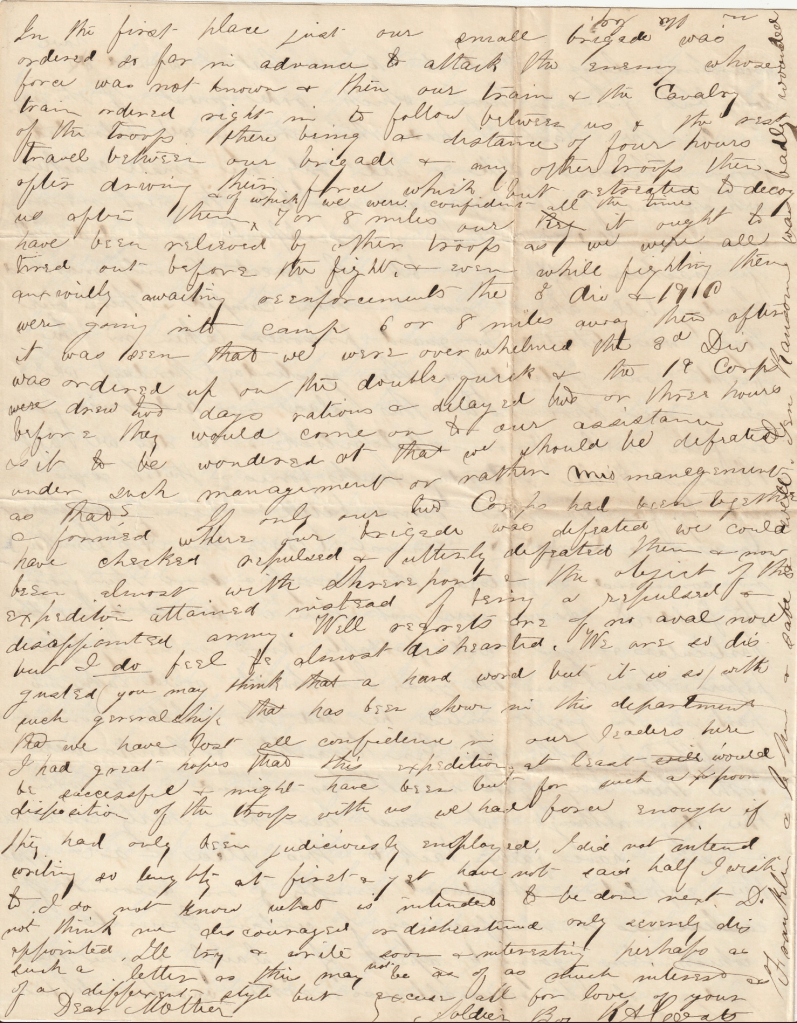 In the first place just our small brigade was
ordered so far in advance to attack the enemy whose
force was not known & then our train & the Cavalry
train ordered right in to follow between us & the rest
of the troops there being a distance of four hours
travel between our brigade & any other troops then
after driving their force which but retreated to decoy
& of which we were confident all the time
us after them, 7 or 8 miles our it ought to
have been relieved by other troops as we were all
tired out before the fight, & even while fighting then
anxiously awaiting reenforcements the 3 Div & 19 A C
were going into camp 6 or 8 miles away then after
it was seen that we were overwhelmed the 3d Div
was ordered up on the double quick & the 19 Corps
were drew two days rations & delayed two or three hours
before they would come on to our assistance
as it to be wondered at that we should be defeated
under such management or rather mis management
as that. If only our two Corps had been together
& formed where our brigade was defeated we could
have checked repulsed & utterly defeated them & now
been almost with Shreveport & the object of the
expedition attained instead of being a repulsed &
disappointed army. Well regrets are of no aval now
but I do feel almost dishearted. We are so dis
gusted (you may think that a hard word but it is so) with
such generalship that has been shown in this department
that we have lost all confidence in our leaders here
I had great hopes that this expedition at least would
be successful & might have been but for such a poor
disposition of the troops with us we had force enough if
they had only been judiciously employed. I did not intend
writing so lengthy at first & yet have not said half I wish
to. I do not know what is intended to be done next. Do
not think me discouraged or disheartened only severely dis
appointed. I'll try & write soon & interesting perhaps as
such a letter as this may not be as of as much interest as
of a different style but excuse all for love of your
Dear Mother Soldier Boy
Franklin & safe & well. Gen Ransom was badly wounded
in the leg.